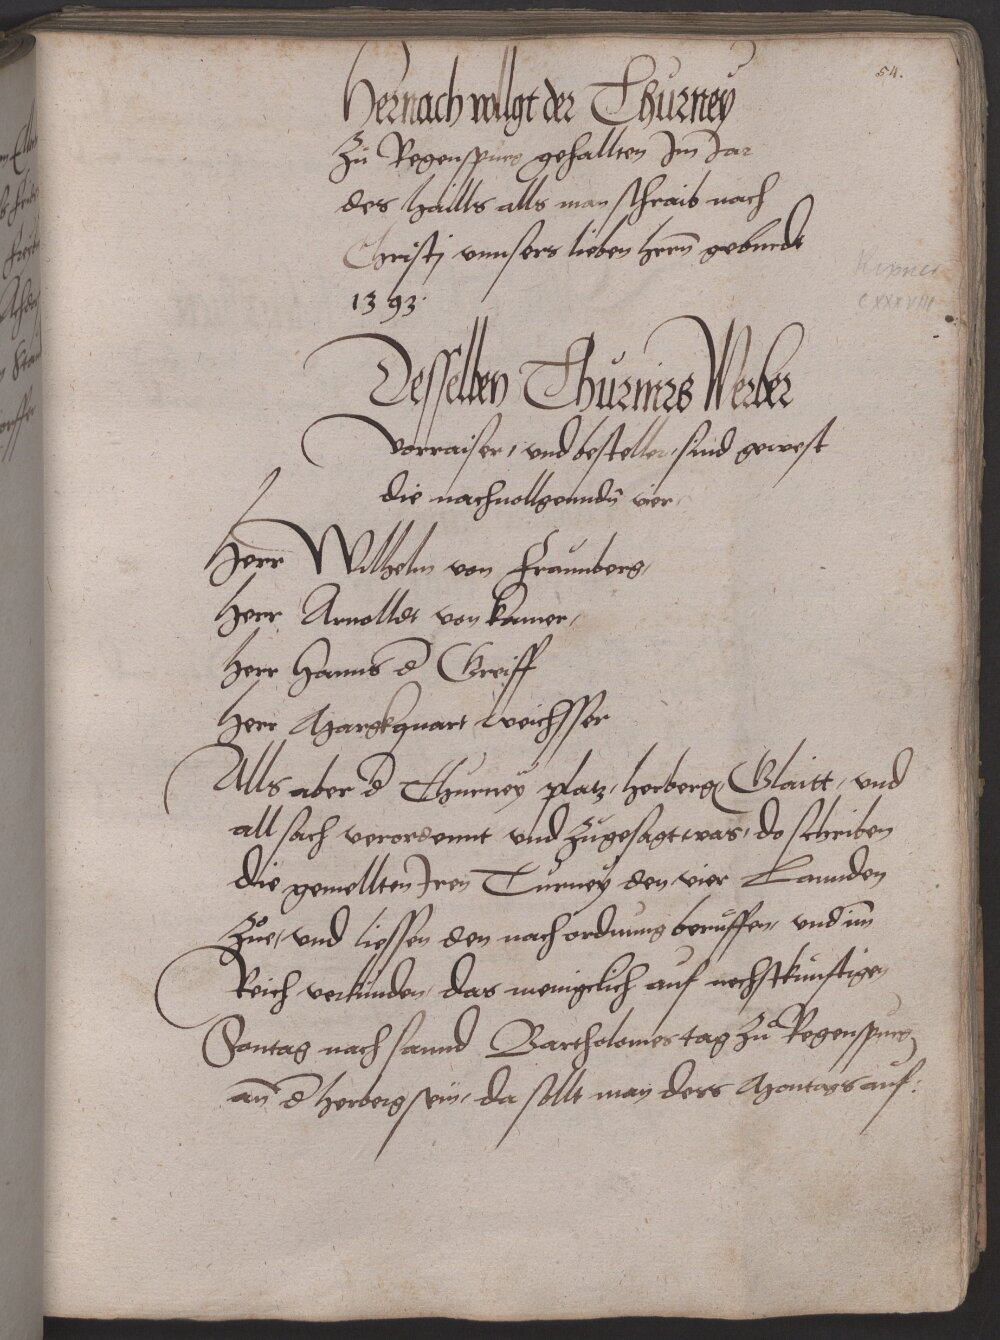 54.
Hernach vollgt der Thurney
Zu Regenspurg gehallten Im Jar
des haills alls man schraib nach
Christj vnnsers lieben herrn geburdt
1393.
Desselben Thurnirs Werber
vorraiser, vnd besteller, sind gewest
die nachuollgenndn vier,
Herr Wilhelm von Fraunberg,
Herr Arnolldt von kamer,
Herr Hanns d Greiff
Herr Margkquart weichsser
Alls aber d Thurney platz, herberg, Glaitt, vnd
all sach verordennt vnd zugesagt was, do schriben
die gemellten Iren Turney den vier Lannden
Zue, vnd liessen den nach ordnung berüffen, vnd im
Reich verkünden, das menigclich auf nechstkünftigen
Sontag nach sannd Bartholomes tag Zu Regenspurg
an d herberg sein, da sollt man dess Montags auf:
CXXXVIII